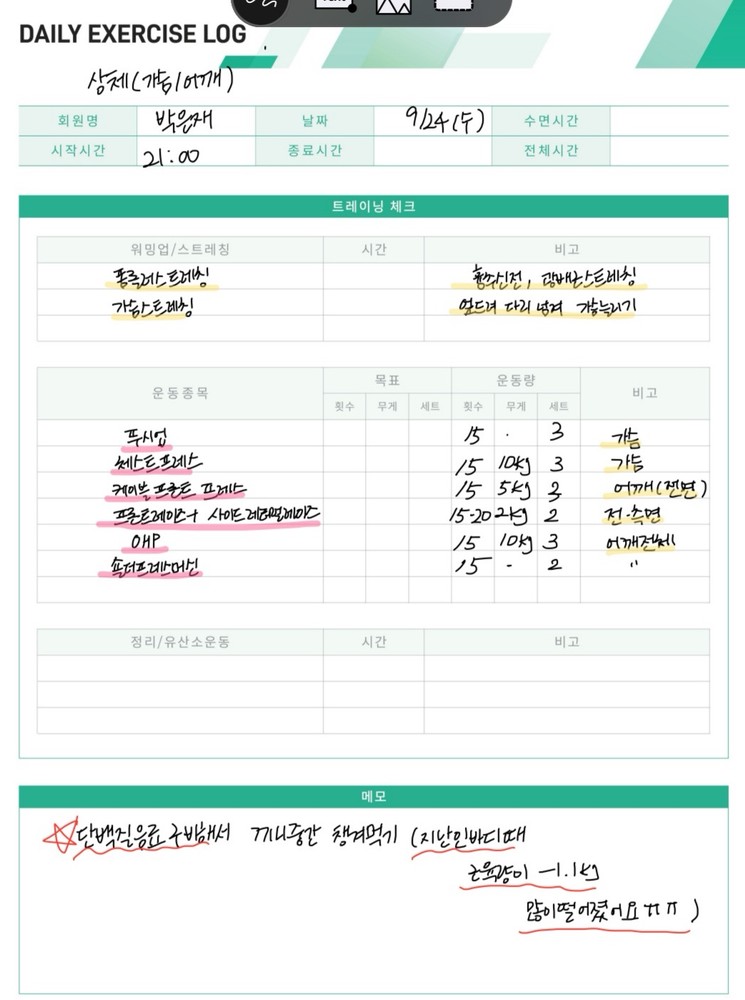 DAILY EXERCISE LOG
상체(가슴/어깨)
회원명 박윤재 날짜 9/24(수) 수면시간
시작시간 21:00 종료시간 전체시간
트레이닝 체크
워밍업/스트레칭 시간 비고
폼롤러스트레칭 흉추신전, 광배근스트레칭
가슴스트레칭 엎드려 다리 넘겨 가슴늘리기
운동종목 목표 운동량 비고
횟수 무게 세트 횟수 무게 세트
푸시업 15 · 3 가슴
체스트프레스 15 10kg 3 가슴
케이블 프론트 프레스 15 5kg 3 어깨(전면)
프론트레이즈+ 사이드레터럴레이즈 15-20 2kg 2 전·측면
OHP 15 10kg 3 어깨전체
숄더프레스머신 15 - 2 "
정리/유산소운동 시간 비고
메모
☆단백질음료 구비해서 끼니중간 챙겨먹기 (지난인바디때
근육량이 -1.1kg
많이떨어졌어요ㅠㅠ)